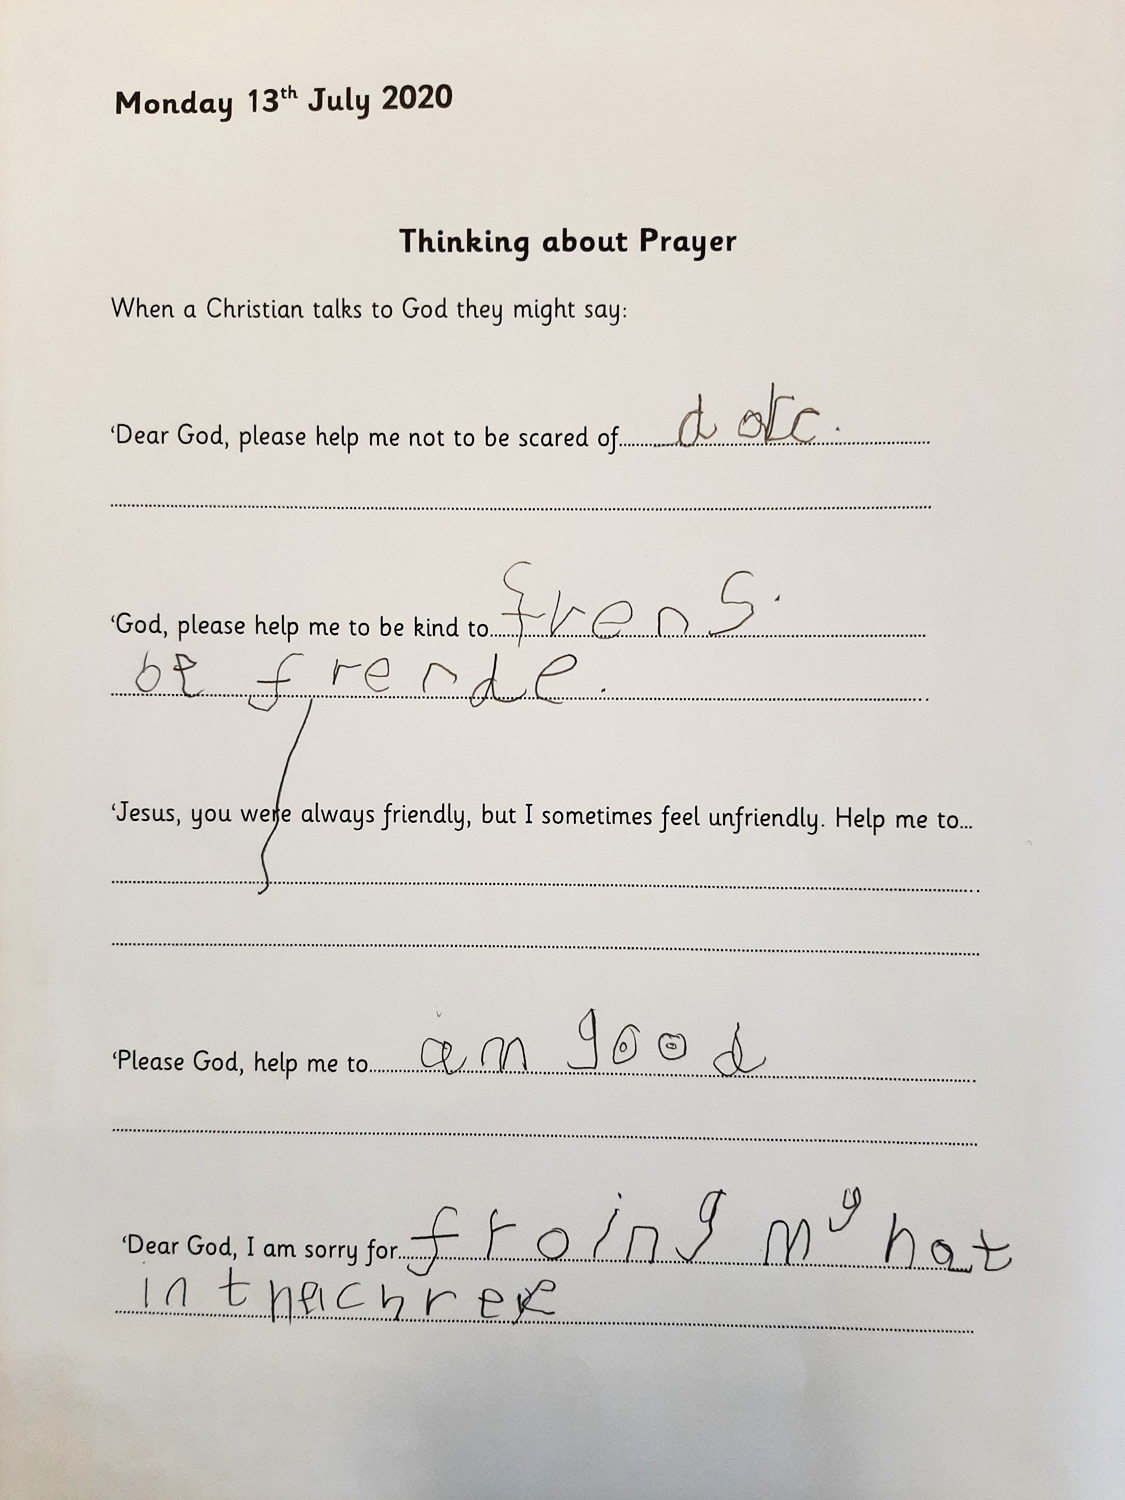 Monday 13th July 2020
Thinking about Prayer
When a Christian talks to God they might say:
‘Dear God, please help me not to be scared of
‘God, please help me to be kind to frens.
be frende.
‘Jesus, you were always friendly, but I sometimes feel unfriendly. Help me to...
‘Please God, help me to am good
‘Dear God, I am sorry for froing my hat
in the